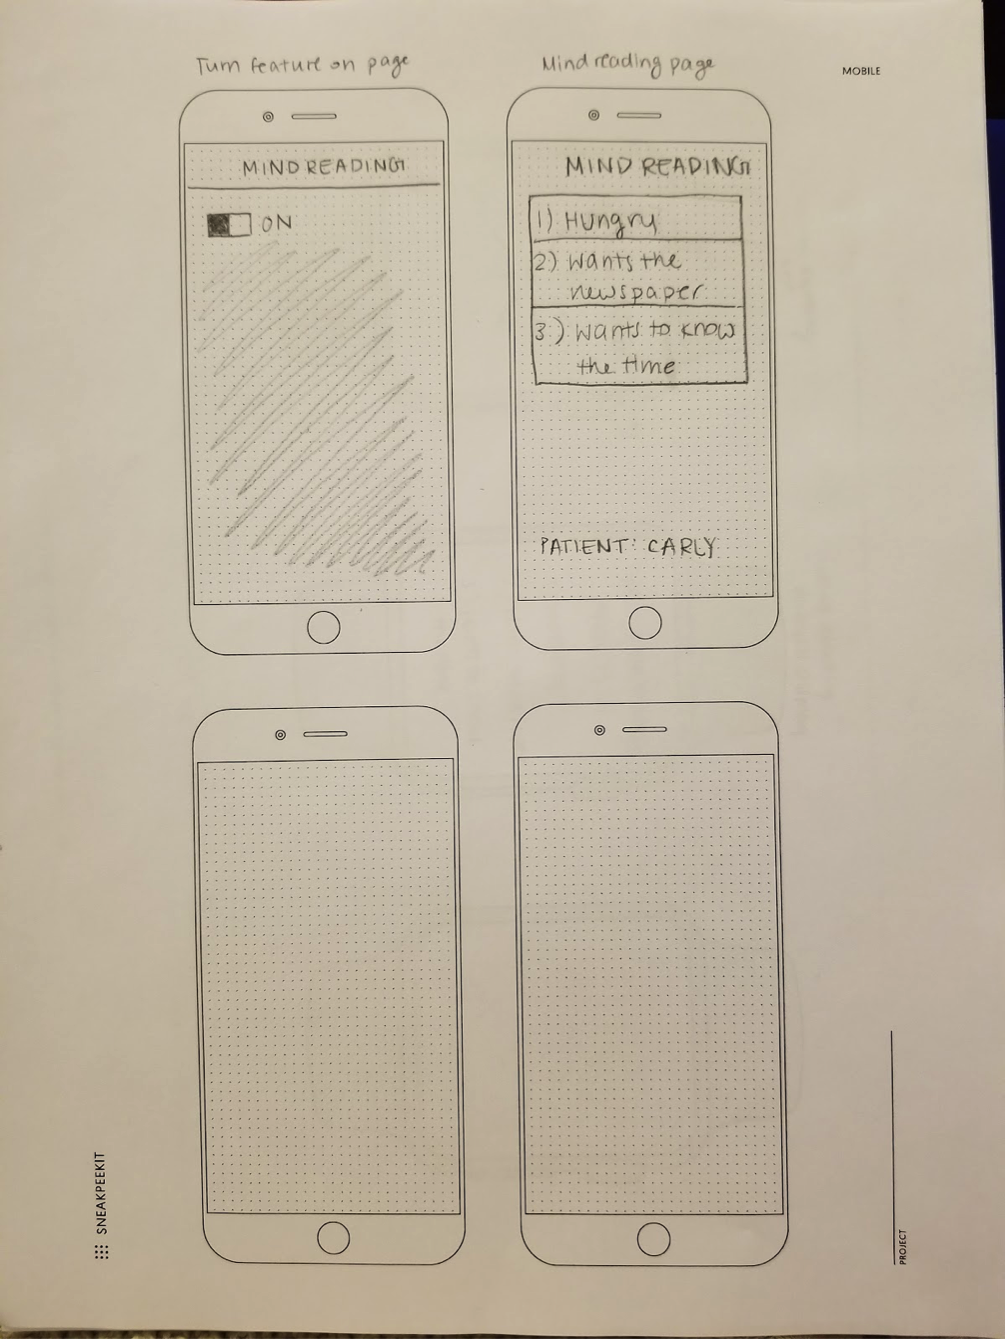 Turn feature on page
Mind reading page
MOBILE
MIND READING
ON
MIND READING
1) Hungry
2) Wants the
newspaper
3) Wants to know
the time
PATIENT: CARLY
SNEAKPEEKIT
PROJECT